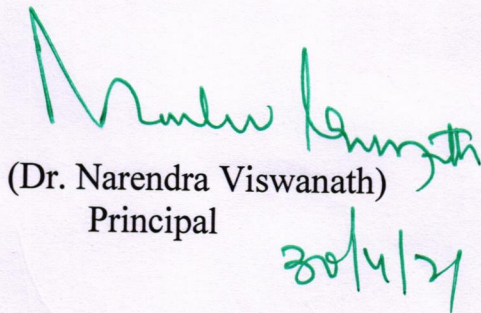 (Dr. Narendra Viswanath)
Principal
30/4/21